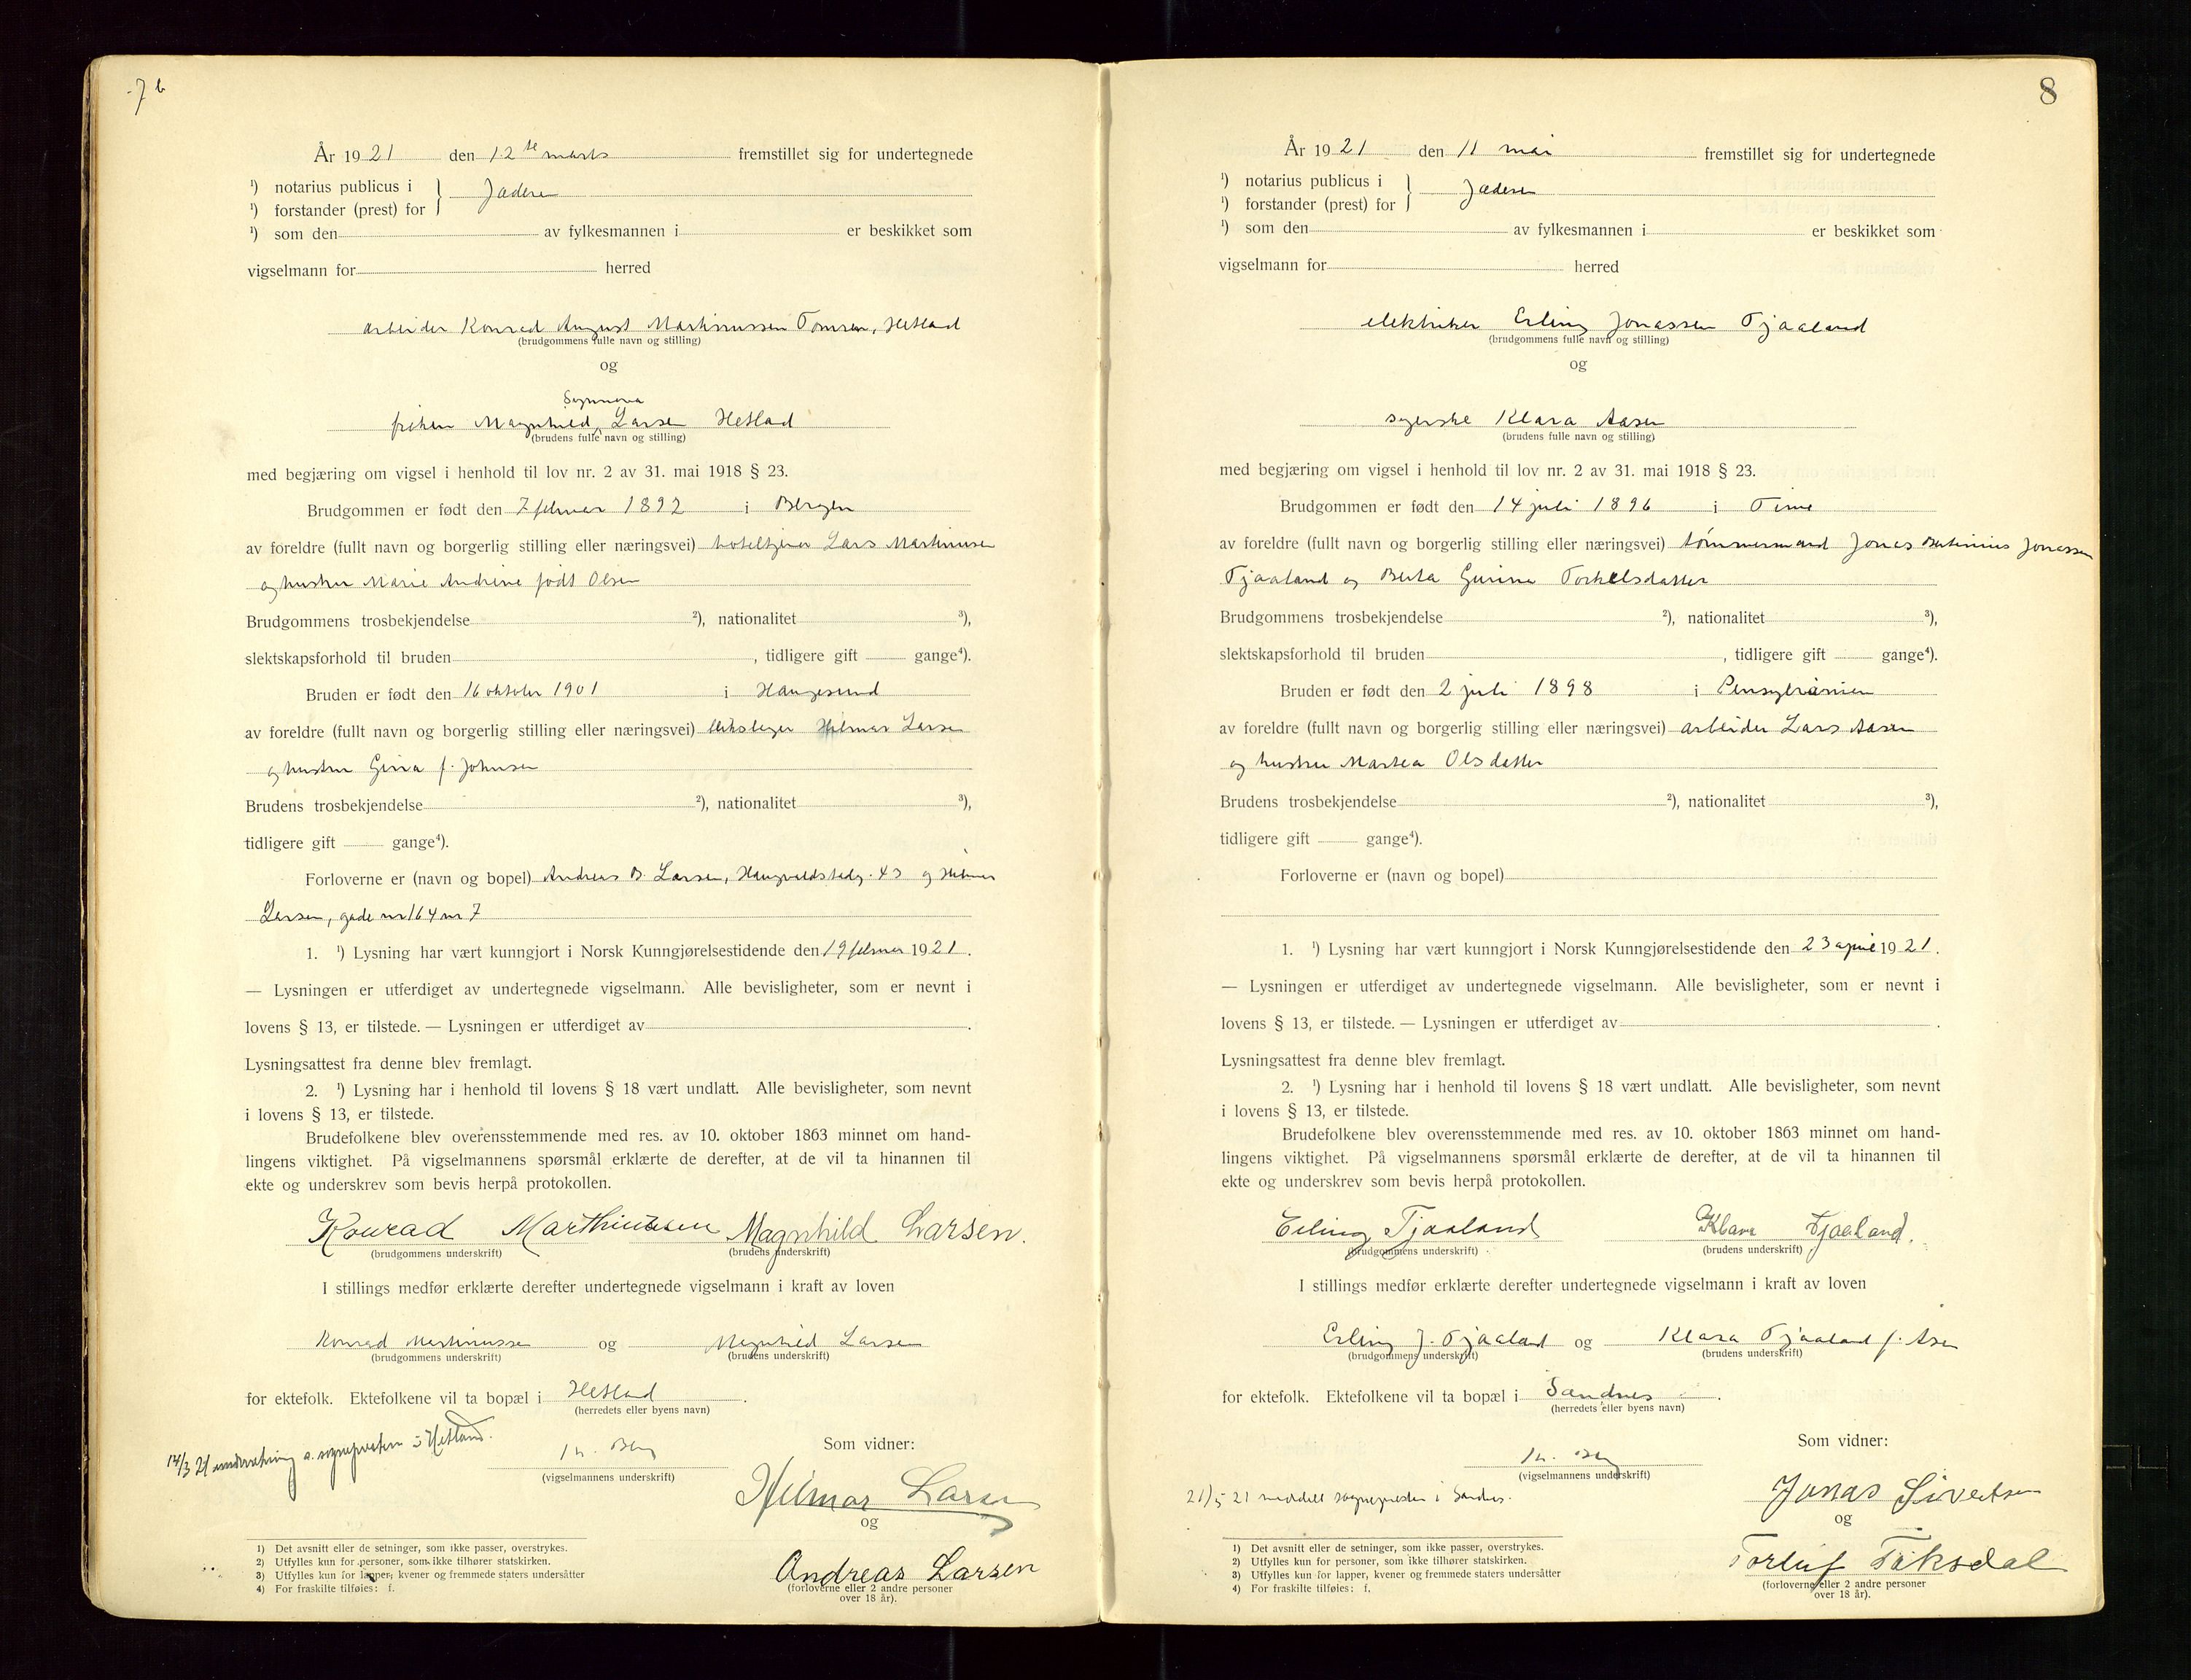 7b
År 1921 den 12te marts fremstillet sig for undertegnede
¹) notarius publicus i
Jæderen
¹) forstander (prest) for
¹) som den av fylkesmannen i er beskikket som
vigselmann for herred
arbeider Konrad August Martinussen Tomsen, Hetland
(brudgommens fulle navn og stilling)
og
Synnøva
frøken Magnhild Larsen Hetland
(brudens fulle navn og stilling)
med begjæring om vigsel i henhold til lov nr. 2 av 31. mai 1918 § 23.
Brudgommen er født den 7 februar 1892 i Bergen
av foreldre (fullt navn og borgerlig stilling eller næringsvei) hoteltjener Lars Martinusen
og hustru Marie Andrine født Olsen
Brudgommens trosbekjendelse ²), nationalitet ³),
slektskapsforhold til bruden , tidligere gift gange⁴).
Bruden er født den 16 oktober 1901 i Haugesund
av foreldre (fullt navn og borgerlig stilling eller næringsvei) Hilmar Larsen
og hustru Gina f. Johnsen
Brudens trosbekjendelse ²), nationalitet ³),
tidligere gift gange⁴).
Forloverne er (navn og bopel) Andreas B. Larsen, Haugvaldstadg. 43 og Hilmar
Larsen, gade nr 164 nr 7
1. ¹) Lysning har vært kunngjort i Norsk Kunngjørelsestidende den 19 februar 1921.
— Lysningen er utferdiget av undertegnede vigselmann. Alle bevisligheter, som er nevnt i
lovens § 13, er tilstede. — Lysningen er utferdiget av .
Lysningsattest fra denne blev fremlagt.
2. ¹) Lysning har i henhold til lovens § 18 vært undlatt. Alle bevisligheter, som nevnt
i lovens § 13, er tilstede.
Brudefolkene blev overensstemmende med res. av 10. oktober 1863 minnet om hand-
lingens viktighet. På vigselmannens spørsmål erklærte de derefter, at de vil ta hinannen til
ekte og underskrev som bevis herpå protokollen.
Konrad Marthinussen Magnhild Larsen.
(brudgommens underskrift) (brudens underskrift)
I stillings medfør erklærte derefter undertegnede vigselmann i kraft av loven
Konrad Martinussen og Magnhild Larsen
(brudgommens underskrift) (brudens underskrift)
for ektefolk. Ektefolkene vil ta bopæl i Hetland .
(herredets eller byens navn)
14/3 21 underretning s. sognepresten i Hetland.
Som vidner:
(vigselmannens underskrift)
Hilmar Larsen
og
Andreas Larsen
(forloverne eller 2 andre personer
over 18 år).
1) Det avsnitt eller de setninger, som ikke passer, overstrykes.
2) Utfylles kun for personer, som ikke tilhører statskirken.
3) Utfylles kun for lapper, kvener og fremmede staters undersåtter
4) For fraskilte tilføies: f.
8
År 1921 den 11 mai fremstillet sig for undertegnede
¹) notarius publicus i
Jæderen
¹) forstander (prest) for
¹) som den av fylkesmannen i er beskikket som
vigselmann for herred
elektriker Erling Jonassen Tjaaland
(brudgommens fulle navn og stilling)
og
syerske Klara Aasen
(brudens fulle navn og stilling)
med begjæring om vigsel i henhold til lov nr. 2 av 31. mai 1918 § 23.
Brudgommen er født den 14 juli 1896 i Time
av foreldre (fullt navn og borgerlig stilling eller næringsvei) tømmermand Jonas Bertinius Jonassen
Tjaaland og Berta Gurina Torkelsdatter
Brudgommens trosbekjendelse ²), nationalitet ³),
slektskapsforhold til bruden , tidligere gift gange⁴).
Bruden er født den 2 juli 1898 i Pensylvanien
av foreldre (fullt navn og borgerlig stilling eller næringsvei) arbeider Lars Aasen
og hustru Martea Olsdatter
Brudens trosbekjendelse ²), nationalitet ³),
tidligere gift gange⁴).
Forloverne er (navn og bopel)
1. ¹) Lysning har vært kunngjort i Norsk Kunngjørelsestidende den 23 april 1921.
— Lysningen er utferdiget av undertegnede vigselmann. Alle bevisligheter, som er nevnt i
lovens § 13, er tilstede. — Lysningen er utferdiget av .
Lysningsattest fra denne blev fremlagt.
2. ¹) Lysning har i henhold til lovens § 18 vært undlatt. Alle bevisligheter, som nevnt
i lovens § 13, er tilstede.
Brudefolkene blev overensstemmende med res. av 10. oktober 1863 minnet om hand-
lingens viktighet. På vigselmannens spørsmål erklærte de derefter, at de vil ta hinannen til
ekte og underskrev som bevis herpå protokollen.
Erling Tjaaland Klara Tjaaland.
(brudgommens underskrift) (brudens underskrift)
I stillings medfør erklærte derefter undertegnede vigselmann i kraft av loven
Erling J. Tjaaland og Klara Tjaaland f. Asen
(brudgommens underskrift) (brudens underskrift)
for ektefolk. Ektefolkene vil ta bopæl i Sandnes .
(herredets eller byens navn)
Som vidner:
(vigselmannens underskrift)
21/5 21 meddelt sognepresten i Sandnes.
Jonas Sivertsen
og
Torleif Taksdal
(forloverne eller 2 andre personer
over 18 år).
1) Det avsnitt eller de setninger, som ikke passer, overstrykes.
2) Utfylles kun for personer, som ikke tilhører statskirken.
3) Utfylles kun for lapper, kvener og fremmede staters undersåtter
4) For fraskilte tilføies: f.